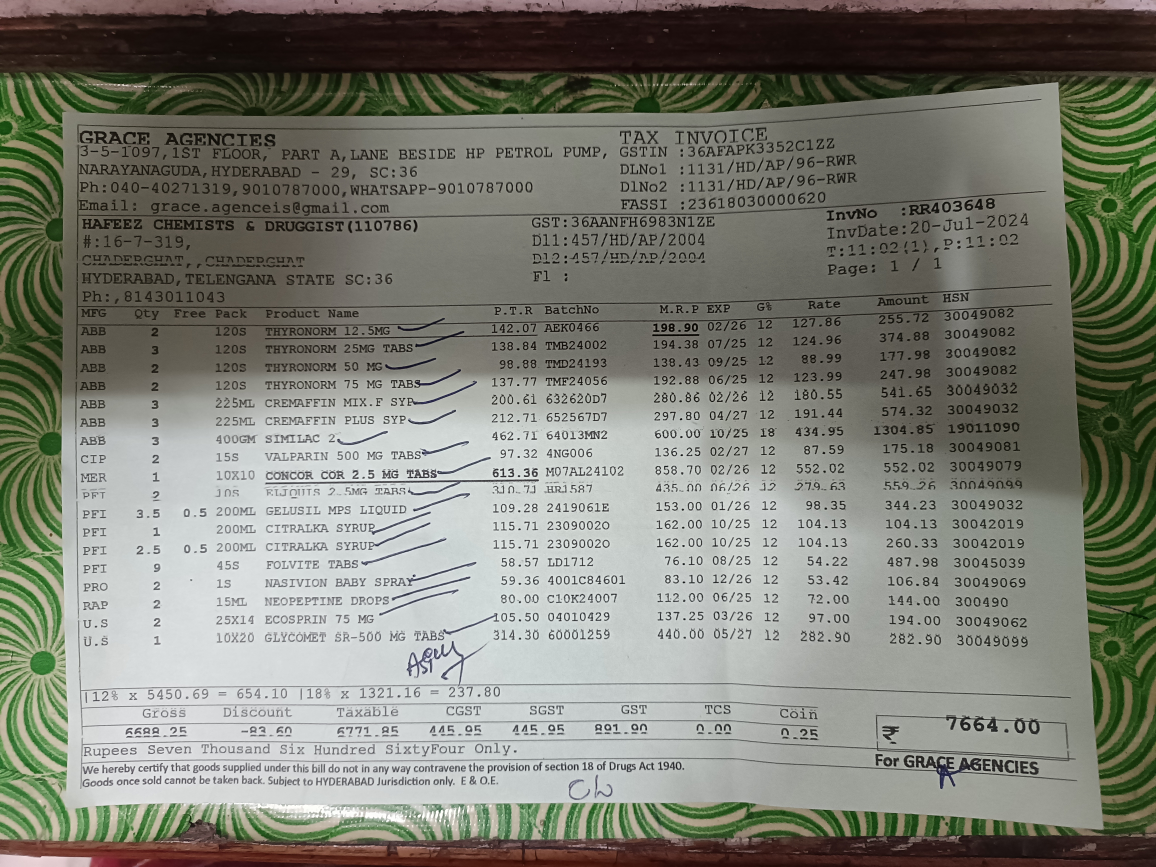 GRACE AGENCIES
3-5-1097,1ST FLOOR, PART A,LANE BESIDE HP PETROL PUMP,
NARAYANAGUDA,HYDERABAD - 29, SC:36
Ph:040-40271319,9010787000,WHATSAPP-9010787000
Email: grace.agenceis@gmail.com
TAX INVOICE
GSTIN :36AFAPK3352C1ZZ
DLNo1 :1131/HD/AP/96-RWR
DlNo2 :1131/HD/AP/96-RWR
FASSI :23618030000620
HAFEEZ CHEMISTS & DRUGGIST(110786)
#:16-7-319,
CHADERGHAT,,CHADERGHAT
HYDERABAD,TELENGANA STATE SC:36
Ph:,8143011043
GST:36AANFH6983N1ZE
D11:457/HD/AP/2004
D12:457/HD/AP/2004
Fl :
InvNo :RR403648
InvDate:20-Jul-2024
T:11:02(1),P:11:02
Page: 1 / 1
MFG Qty Free Pack Product Name P.T.R BatchNo M.R.P EXP G% Rate Amount HSN
ABB 2 120S THYRONORM 12.5MG 142.07 AEK0466 198.90 02/26 12 127.86 255.72 30049082
ABB 3 120S THYRONORM 25MG TABS 138.84 TMB24002 194.38 07/25 12 124.96 374.88 30049082
ABB 2 120S THYRONORM 50 MG 98.88 TMD24193 138.43 09/25 12 88.99 177.98 30049082
ABB 2 120S THYRONORM 75 MG TABS 137.77 TMF24056 192.88 06/25 12 123.99 247.98 30049082
ABB 3 225ML CREMAFFIN MIX.F SYP 200.61 632620D7 280.86 02/26 12 180.55 541.65 30049032
ABB 3 225ML CREMAFFIN PLUS SYP 212.71 652567D7 297.80 04/27 12 191.44 574.32 30049032
ABB 3 400GM SIMILAC 2 462.71 64013MN2 600.00 10/25 18 434.95 1304.85 19011090
CIP 2 15S VALPARIN 500 MG TABS 97.32 4NG006 136.25 02/27 12 87.59 175.18 30049081
MER 1 10X10 CONCOR COR 2.5 MG TABS 613.36 M07AL24102 858.70 02/26 12 552.02 552.02 30049079
PFI 2 10S ELIQUIS 2.5MG TABS 310.71 HR1587 435.00 06/26 12 279.63 559.26 30049099
PFI 3.5 0.5 200ML GELUSIL MPS LIQUID 109.28 2419061E 153.00 01/26 12 98.35 344.23 30049032
PFI 1 200ML CITRALKA SYRUP 115.71 23090020 162.00 10/25 12 104.13 104.13 30042019
PFI 2.5 0.5 200ML CITRALKA SYRUP 115.71 23090020 162.00 10/25 12 104.13 260.33 30042019
PFI 9 45S FOLVITE TABS 58.57 LD1712 76.10 08/25 12 54.22 487.98 30045039
PRO 2 1S NASIVION BABY SPRAY 59.36 4001C84601 83.10 12/26 12 53.42 106.84 30049069
RAP 2 15ML NEOPEPTINE DROPS 80.00 C10K24007 112.00 06/25 12 72.00 144.00 300490
U.S 2 25X14 ECOSPRIN 75 MG 105.50 04010429 137.25 03/26 12 97.00 194.00 30049062
U.S 1 10X20 GLYCOMET SR-500 MG TABS 314.30 60001259 440.00 05/27 12 282.90 282.90 30049099
|12% x 5450.69 = 654.10 |18% x 1321.16 = 237.80
Gross Discount Taxable CGST SGST GST TCS Coin
6688.25 -83.60 6771.85 445.95 445.95 891.90 0.00 0.25
₹ 7664.00
Rupees Seven Thousand Six Hundred SixtyFour Only.
For GRACE AGENCIES
We hereby certify that goods supplied under this bill do not in any way contravene the provision of section 18 of Drugs Act 1940.
Goods once sold cannot be taken back. Subject to HYDERABAD Jurisdiction only. E & O.E.